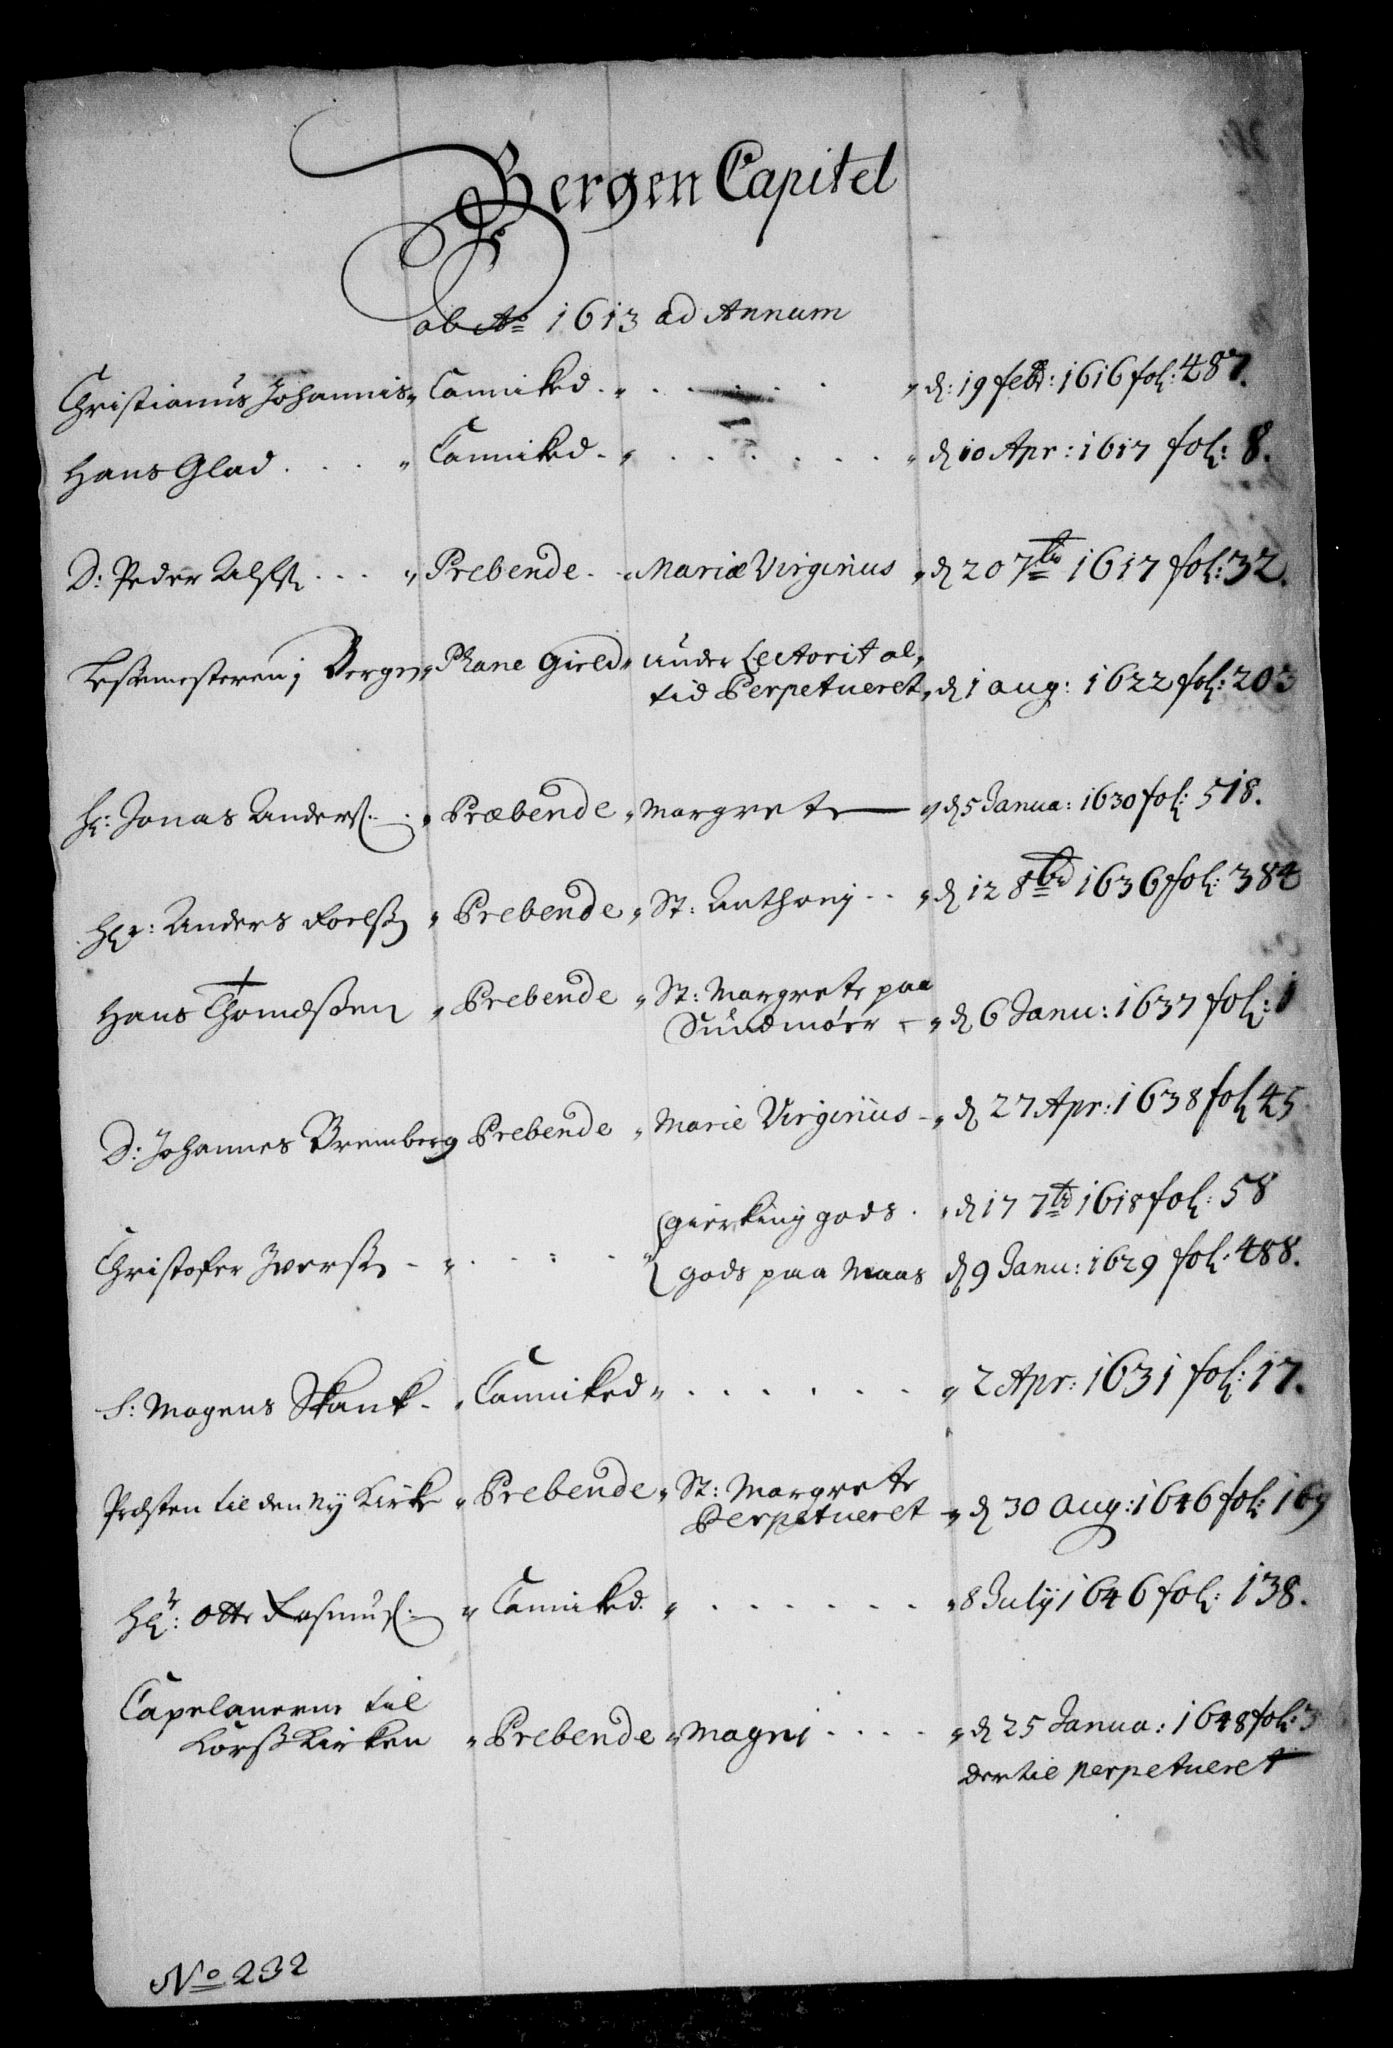 Bergen Capitel
ab Ao 1613 ad Annum
Christianus Johannis „ Canniked . „ . . . . . „ d: 19 febr: 1616 fol: 487.
Hans Glad . . . . „ Canniked . „ . . . . . . . „ d 10 Apr: 1617 fol: 8.
D: Peder Alfß . . . „ Prebende . „ Mariæ Virginius „ d 20 7br 1617 fol: 32.
Leßemesteren i Bergen „ Phane Gield „ under Lectorit al„
tid Perpetueret „ d 1 aug: 1622 fol: 203
H: Jonas Anders: . „ Præbende „ Margrete „ d 5 Janua: 1630 fol: 518.
Hr: Anders Foelß „ Prebende „ St: Anthonj . . „ d 12 8br 1636 fol: 384
Hans Thomeßen „ Prebende „ St: Margrete paa
Sundmöer - „ d 6 Janu: 1637 fol: 1
D: Johannes Bremberg Prebende „ Marie Virginius - „ d 27 Apr: 1638 fol 45
gierking gods . „ d 17 7br 1618 fol: 58
Christofer Iverß - „ . . . . „
gods paa Maas d 9 Janu: 1629 fol: 488.
S: Mogens Skank . „ Canniked „ . . . . . . „ 2 Apr: 1631 fol: 17.
Præsten til den Ny Kirke „ Prebende „ St: Margrete
Perpetueret - „ d 30 Aug: 1646 fol: 169
Hr: Otte Rasmus: „ Canniked . „ . . . . . . . „ 8 July 1646 fol: 138.
Capelanerne til
Korß Kirken „ Prebende „ Magni . . . . „ d 25 Janua: 1648 fol: 3
Dertil perpetueret
No 232